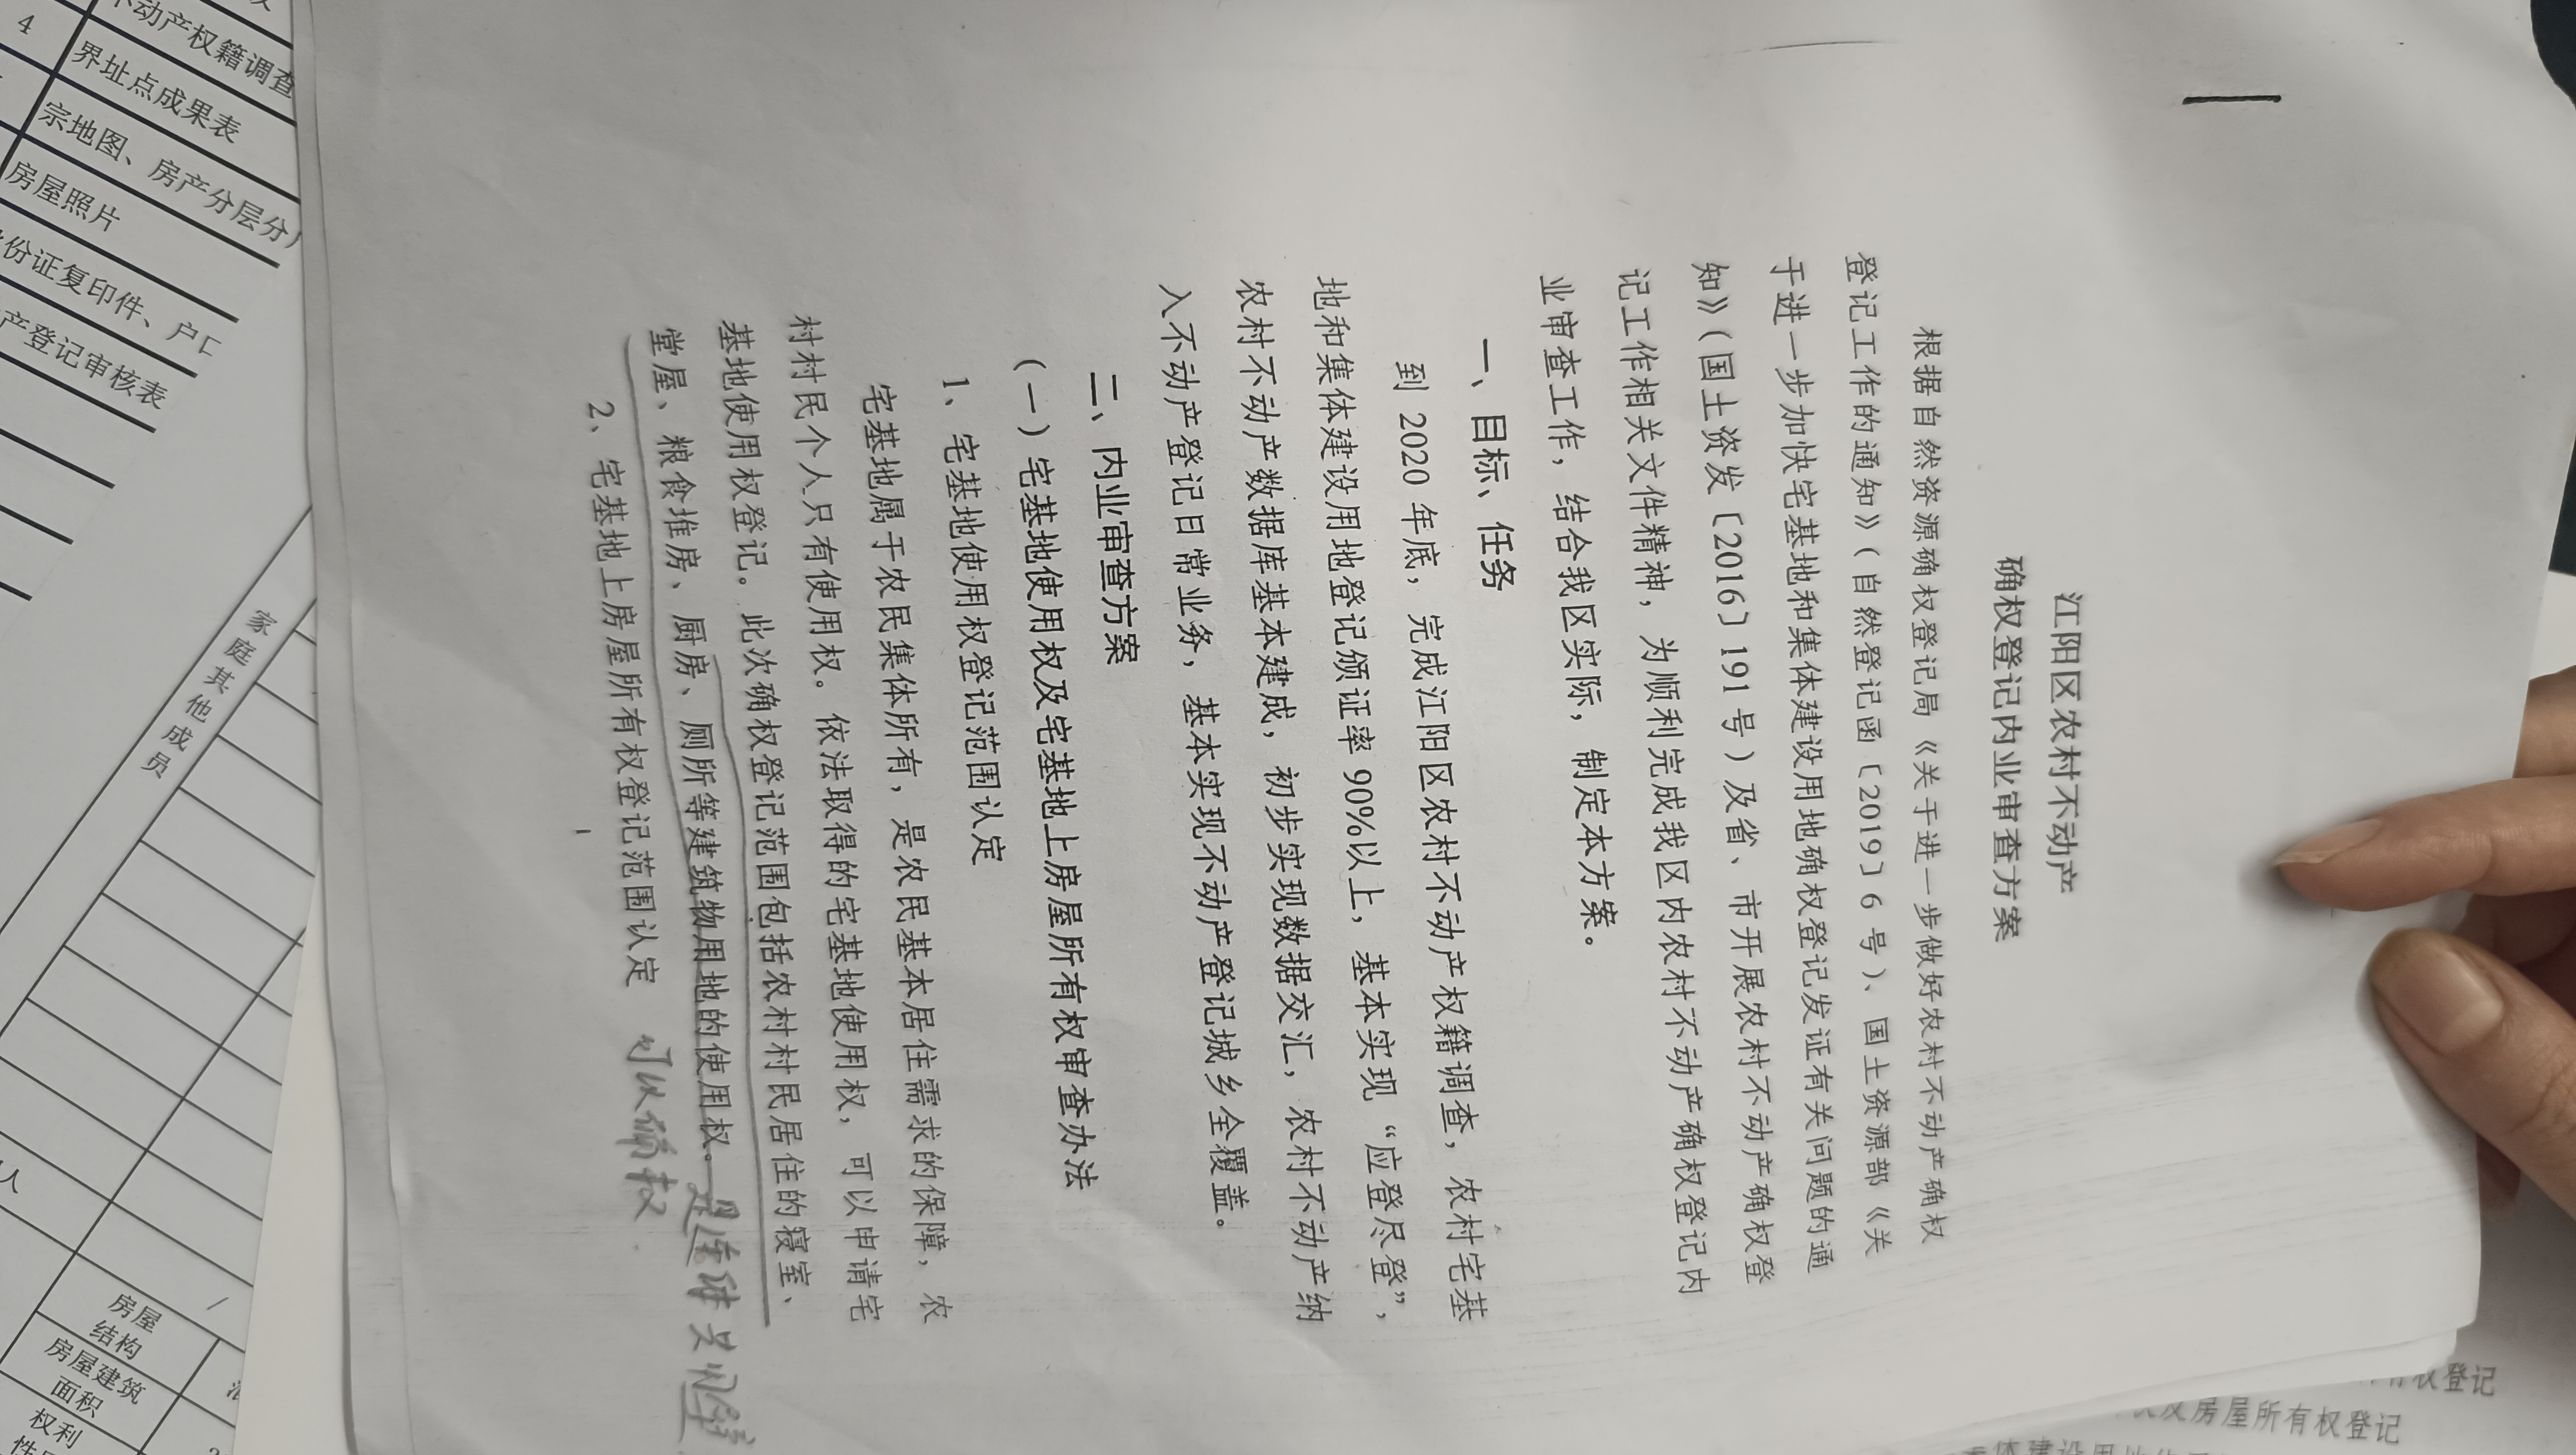 江阳区农村不动产
确权登记内业审查方案
根据自然资源确权登记局《关于进一步做好农村不动产确权
登记工作的通知》（自然登记函〔2019〕6 号）、国土资源部《关
于进一步加快宅基地和集体建设用地确权登记发证有关问题的通
知》（国土资发〔2016〕191 号）及省、市开展农村不动产确权登
记工作相关文件精神，为顺利完成我区内农村不动产确权登记内
业审查工作，结合我区实际，制定本方案。
一、目标、任务
到 2020 年底，完成江阳区农村不动产权籍调查，农村宅基
地和集体建设用地登记颁证率 90%以上，基本实现“应登尽登”，
农村不动产数据库基本建成，初步实现数据交汇，农村不动产纳
入不动产登记日常业务，基本实现不动产登记城乡全覆盖。
二、内业审查方案
（一）宅基地使用权及宅基地上房屋所有权审查办法
1、宅基地使用权登记范围认定
宅基地属于农民集体所有，是农民基本居住需求的保障，农
村村民个人只有使用权。依法取得的宅基地使用权，可以申请宅
基地使用权登记。此次确权登记范围包括农村村民居住的寝室、
堂屋、粮食堆房、厨房、厕所等建筑物用地的使用权。
2、宅基地上房屋所有权登记范围认定
可以确权
4
不动产权籍调查
界址点成果表
宗地图、房产分层分
房屋照片
份证复印件、户口
产登记审核表
家庭其他成员
人
房屋
结构
房屋建筑
面积
权利
权登记
及房屋所有权登记